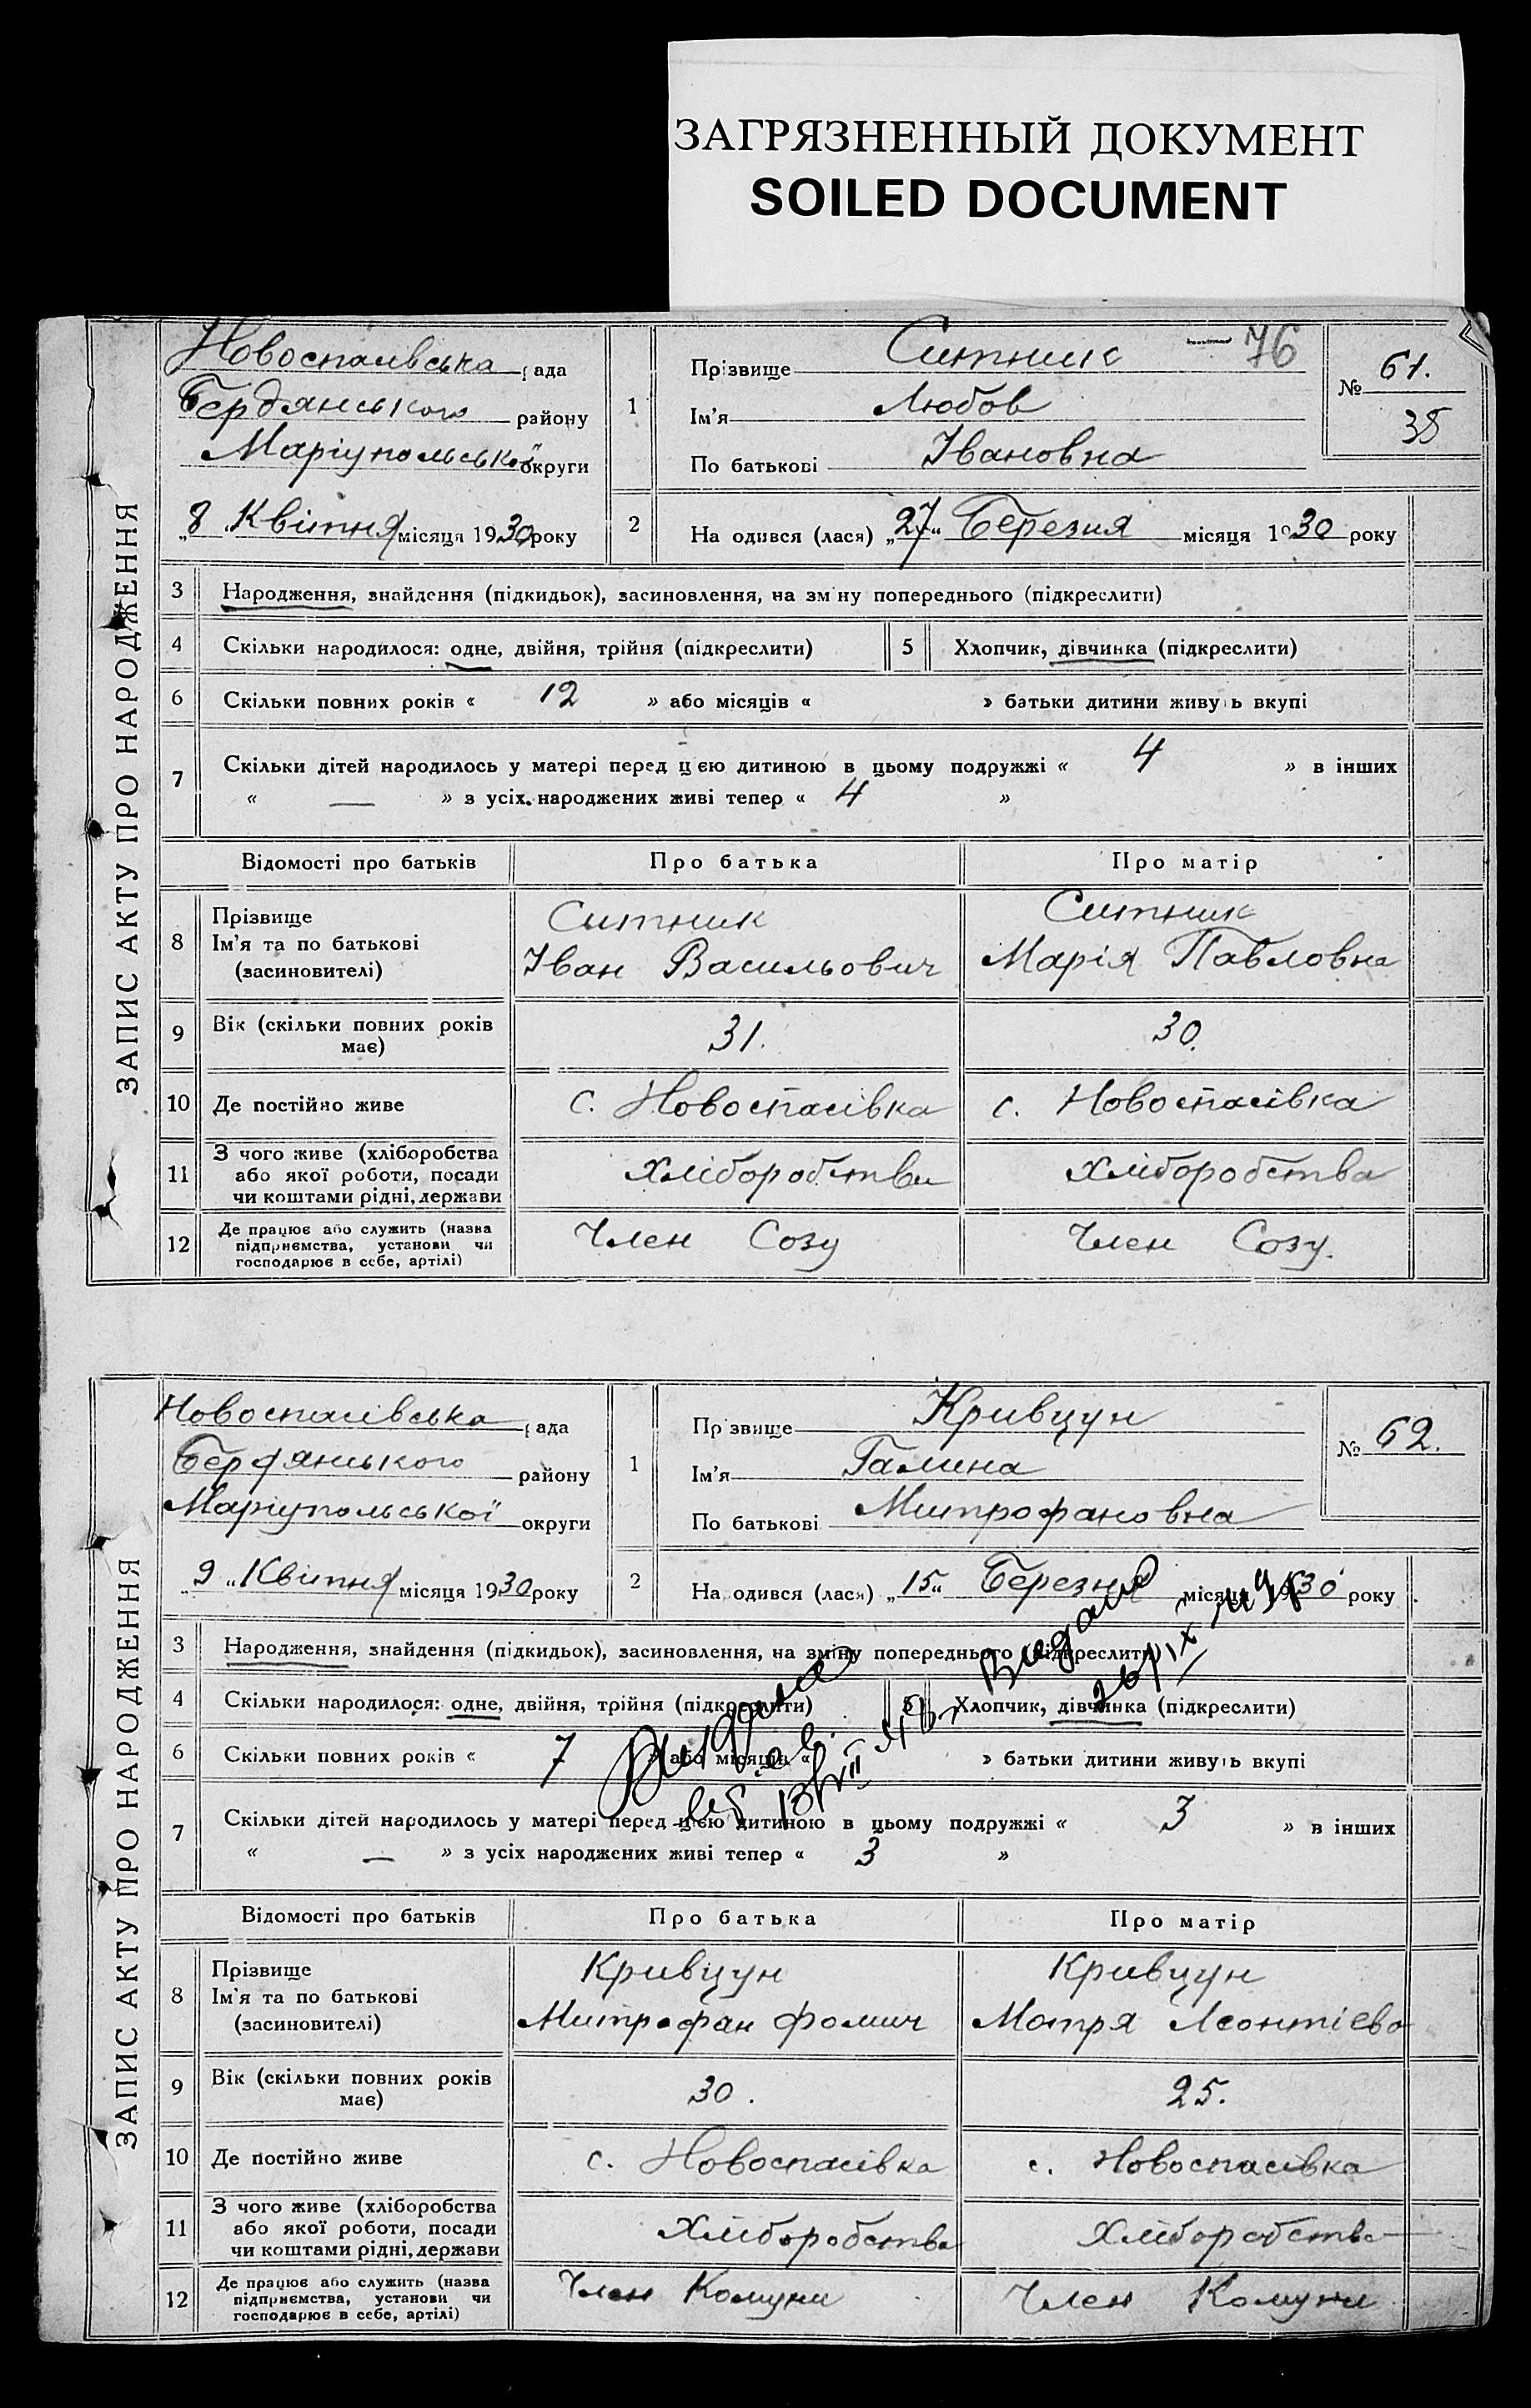 ЗАГРЯЗНЕННЫЙ ДОКУМЕНТ
SOILED DOCUMENT
ЗАПИС АКТУ ПРО НАРОДЖЕННЯ
Новоспасівська рада
Бердянського району
Маріупольської округи
„8" Квітня місяця 1930 року
1
Прізвище Ситник
76
Ім'я Любов
По батькові Івановна
№ 61.
38
2 На одився (лася) „27" Березня місяця 1930 року
3 Народження, знайдення (підкидьок), засиновлення, на зміну попереднього (підкреслити)
4 Скільки народилося: одне, двійня, трійня (підкреслити) 5 Хлопчик, дівчинка (підкреслити)
6 Скільки повних років « 12 » або місяців « » батьки дитини живуть вкупі
7 Скільки дітей народилось у матері перед цією дитиною в цьому подружжі « 4 » в інших
« — » з усіх народжених живі тепер « 4 »
Відомості про батьків Про батька Про матір
8 Прізвище Ім'я та по батькові (засиновителі)
Ситник Ситник
Іван Васильович Марія Павловна
9 Вік (скільки повних років має) 31. 30.
10 Де постійно живе с. Новоспасівка с. Новоспасівка
11 З чого живе (хліборобства або якої роботи, посади чи коштами рідні, держави
Хліборобства Хліборобства
12 Де працює або служить (назва підприємства, установи чи господарює в себе, артілі)
Член Созу Член Созу.
ЗАПИС АКТУ ПРО НАРОДЖЕННЯ
Новоспасівська рада
Бердянського району
Маріупольської округи
„9" Квітня місяця 1930 року
1
Прізвище Кривцун
Ім'я Галина
По батькові Митрофановна
№ 62.
2 На одився (лася) „15" Березня місяця 1930 року
3 Народження, знайдення (підкидьок), засиновлення, на зміну попереднього (підкреслити)
4 Скільки народилося: одне, двійня, трійня (підкреслити) 5 Хлопчик, дівчинка (підкреслити)
6 Скільки повних років « 7 » або місяців « » батьки дитини живуть вкупі
7 Скільки дітей народилось у матері перед цією дитиною в цьому подружжі « 3 » в інших
« — » з усіх народжених живі тепер « 3 »
Відомості про батьків Про батька Про матір
8 Прізвище Ім'я та по батькові (засиновителі)
Кривцун Кривцун
Митрофан Фомич Мотря Леонтіево
9 Вік (скільки повних років має) 30. 25.
10 Де постійно живе с. Новоспасівка с. Новоспасівка
11 З чого живе (хліборобства або якої роботи, посади чи коштами рідні, держави
Хліборобства Хліборобства
12 Де працює або служить (назва підприємства, установи чи господарює в себе, артілі)
Член Комуни Член Комуни